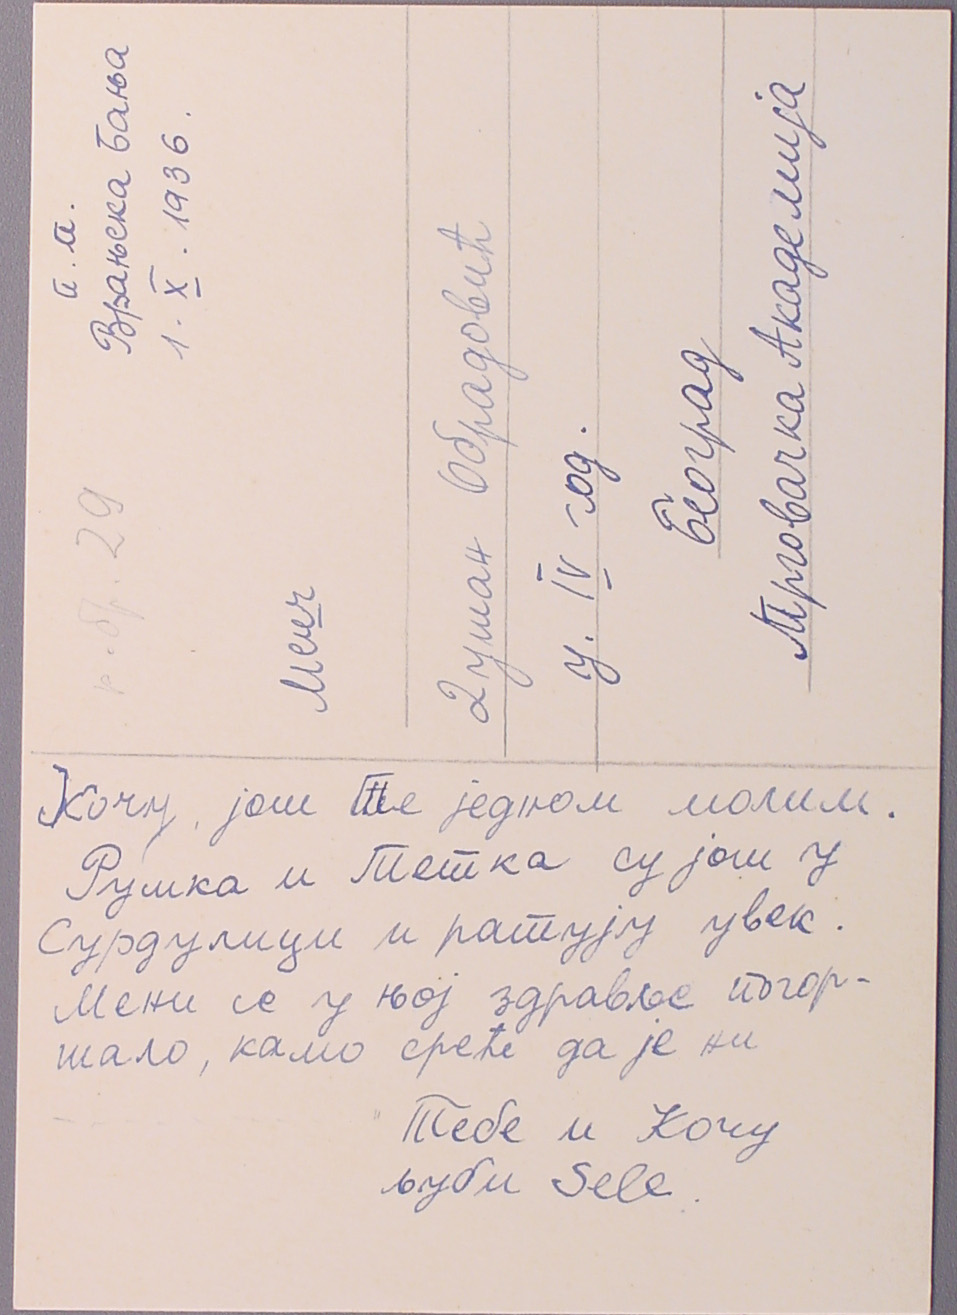 п. п.
Врањска Бања
1. X. 1936.
к. бр. 29
Душан Обрадовић
у. IV год.
Београд
Трговачка Академија
Кочу, још Те једном молим.
Румка и Тетка су још у
Сурдулици и ратују увек.
Мени се у њој здравље погор-
шало, камо среће да је ни
Тебе и Кочу
љуби Sele.